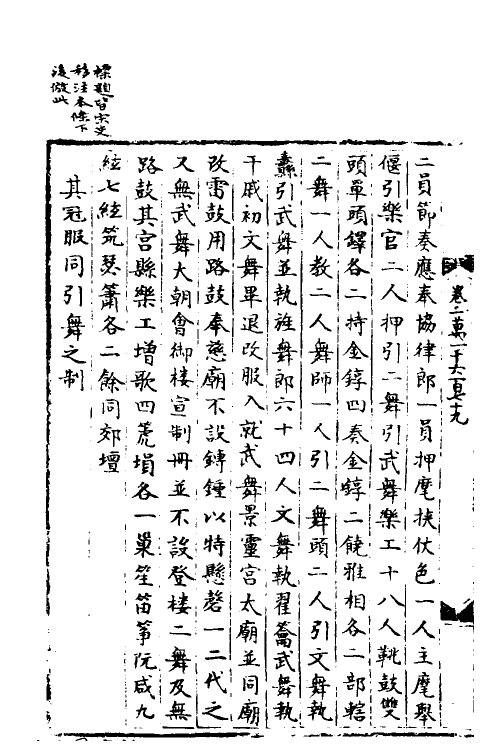 卷二萬一千六百七十九
二員節奏應奉協律郎一員押麾挾仗色一人主麾舉
偃引樂官二人押引二舞引武舞樂工十八人鞉鼓雙
頭單頭鐸各二持金錞四奏金錞二鐃雅相各二部轄
二舞一人教二人舞師一人引二舞頭二人引文舞執
纛引武舞並執旌舞郎六十四人文舞執翟籥武舞執
干戚初文舞畢退改服入就武舞景靈宮太廟並同廟
改雷鼓用路鼓奉慈廟不設鏄鍾以特懸磬一二代之
又無武舞大朝會御樓宣制冊並不設登樓二舞及無
路鼓其宮縣樂工增歌四篪塤各一巢笙笛箏阮咸九
絃七絃筑瑟簫各二餘同郊壇
其冠服同引舞之制
標題皆宋史
移注本條下
後倣此